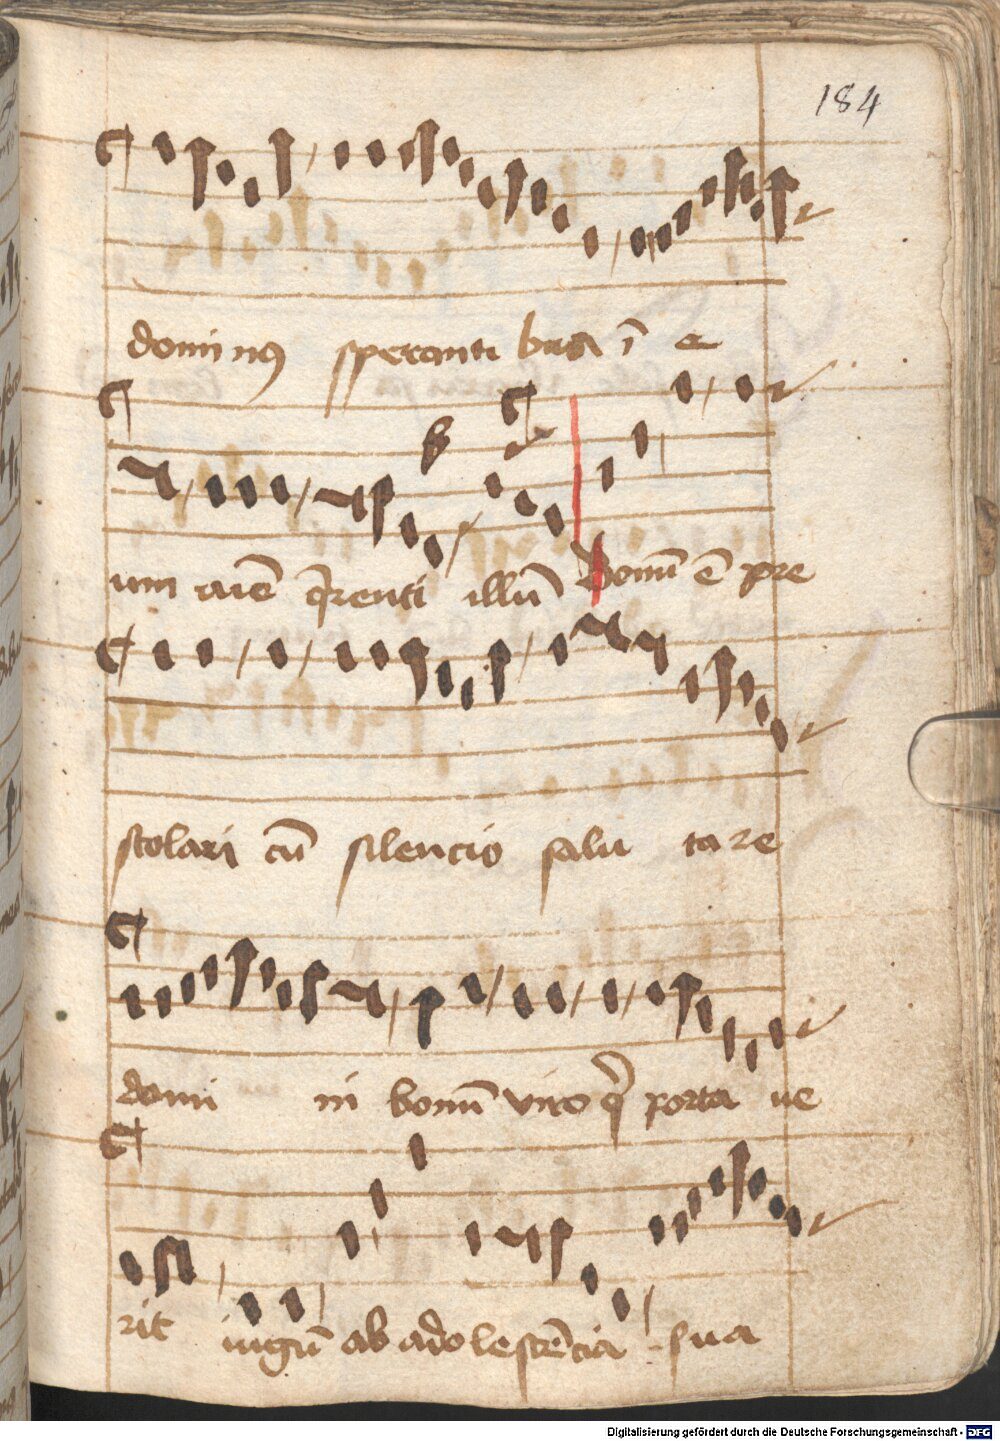 184
dominꝰ sperantibus ī e
um aīe q̄renti illū Bonū ē pre
stolari cū silencio saluta re
domi ni bonū viro q̄ porta ue
rit iugū ab adolescēcia sua
Digitalisierung gefördert durch die Deutsche Forschungsgemeinschaft - DFG